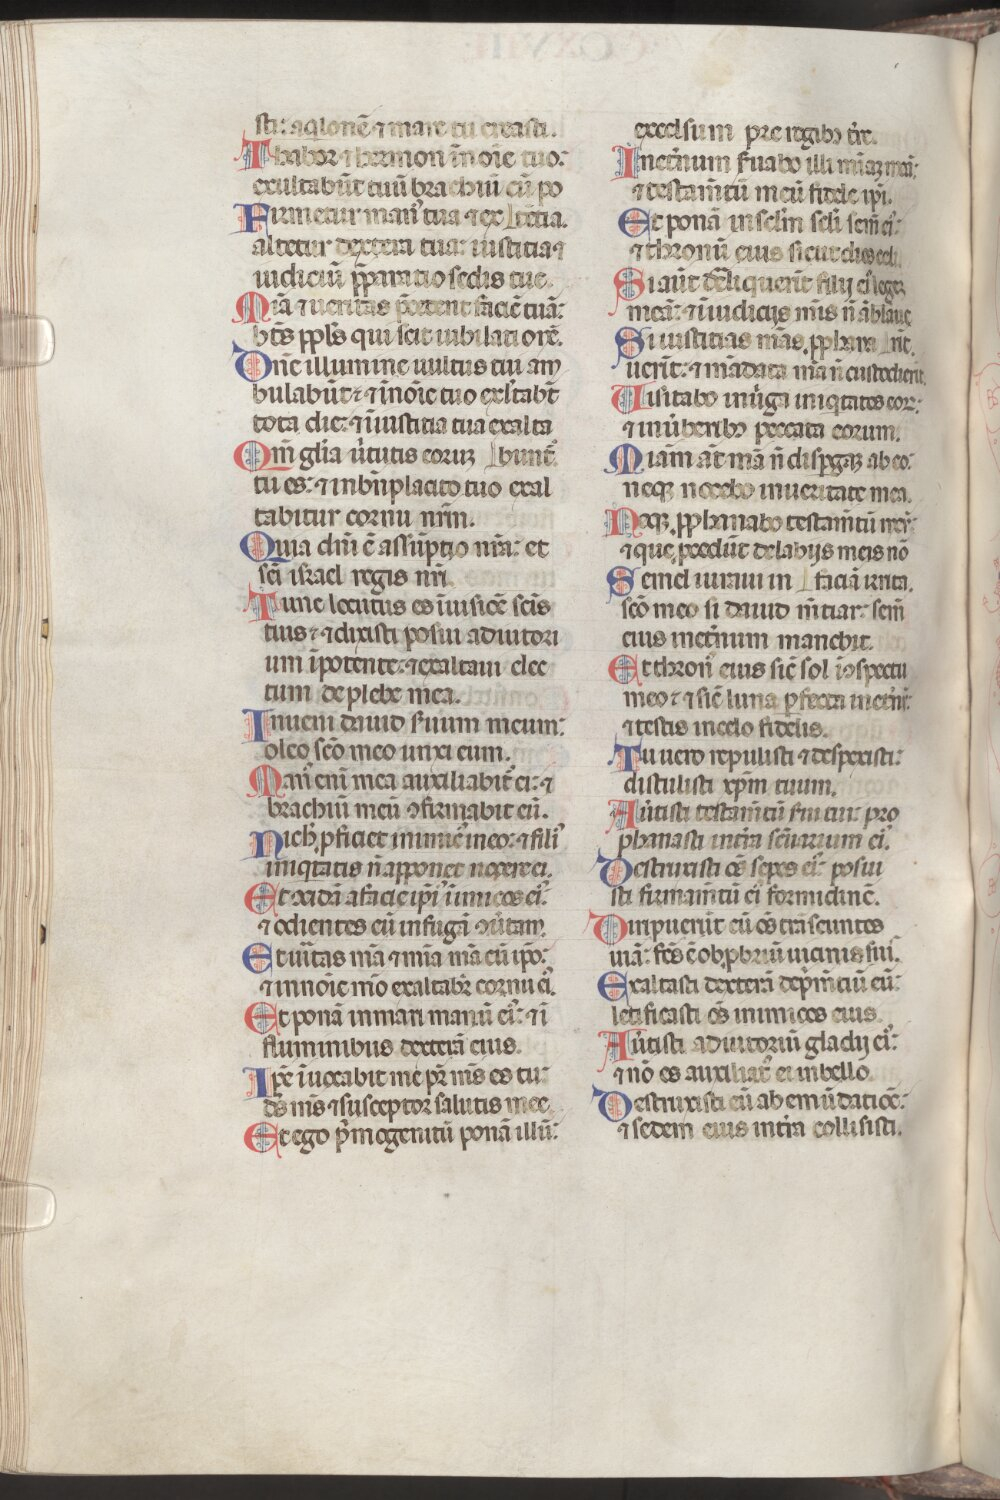 sti: aq̃lonẽ ⁊ mare tu creasti.
Thabor ⁊ hermon ĩ noĩe tuo:
exultabũt tuũ brachiũ cũ po
Firmetur manꝰ tua ⁊ ex tẽtia.
altetur dextera tua: iusticia ⁊
iudiciũ p̃paratio sedis tue.
Mĩa ⁊ ueritas p̃cedent faciẽ tuã:
btũs pp̃ls qui scit iubilationẽ.
Dñe illumine uultus tui am
bulabũt: ⁊ ĩ noĩe tuo exultabt̃
tota die: ⁊ ĩ iusticia tua exalta
Qm̃ gl̃ia ũtutis eorum bunt̃.
tu es: ⁊ in bñplacito tuo exal
tabitur cornu nr̃m.
Quia dñi ẽ assũptio nr̃a: et
sc̃i israel regis nr̃i.
Tunc locutus es ĩ uisiõe sc̃is
tuis: ⁊ dixisti posui adiutori
um ĩ potente: ⁊ exaltaui elec
tum de plebe mea.
Inueni dauid s̃uum meum:
oleo sc̃o meo unxi eum.
Manꝰ eni mea auxiliabit̃ ei: ⁊
brachiũ meũ ꝯfirmabit eũ.
Nich̃ ꝓficiet inimicꝰ ĩ eo: ⁊ filiꝰ
iniq̃tatis ñ apponet nocere ei.
Et ꝯcidã a facie ipĩꝰ inimicos eiꝰ:
⁊ odientes eũ in fugã ꝯũtam.
Et ũitas mã ⁊ mĩa mã cũ ipõ:
⁊ in noĩe m̃o exaltabr̃ cornu eiꝰ.
Et ponã in mari manũ eiꝰ: ⁊ ĩ
fluminibus dexterã eius.
Ip̃e ĩuocabit me pr̃ m̃s es tu:
ds̃ m̃s ⁊ susceptor salutis mee.
Et ego p̃mogenitũ ponã illũ:
excelsum pre regibꝰ tr̃e.
In et̃num s̃uabo illi mĩam meã:
⁊ testam̃tũ meũ fidele ip̃i.
Et ponã in sc̃lm sc̃li sem̃ eiꝰ:
⁊ thronũ eius sicut dies celi.
Si aũt derelĩquerĩt filij eiꝰ legẽ
meã: ⁊ ĩ iudicijs m̃is ñ ãblaue
Si iusticias m̃as ꝓphana rĩt.
uerĩt: ⁊ mãdata m̃a ñ custodierĩt.
Uisitabo in ũga iniq̃tates eor̃:
⁊ in ũberibꝰ peccata eorum.
Mĩam aũt mã ñ disp̃gam ab eo:
neqꝫ nocebo in ueritate mea.
Neqꝫ ꝓphanabo testam̃tũ meũ:
⁊ que ꝓcedũt de labijs meis nõ
Semel iuraui in faciã irrita.
sc̃o meo si dauid m̃tiar: sem̃
eius in et̃num manebit.
Et thronꝰ eius sic̃ sol ĩ ꝯspectu
meo: ⁊ sic̃ luna p̃fecta in et̃nũ:
⁊ testis in celo fidelis.
Tu uero repulisti ⁊ despexisti:
distulisti xp̃m tuum.
Aũtisti testam̃tũ s̃ui tui: pro
phanasti in tr̃a sc̃uarium eiꝰ.
Destruxisti oẽs sepes eiꝰ: posui
sti firmam̃tũ eiꝰ formidinẽ.
Diripuerũt eũ oẽs trãseuntes
uiã: fc̃s ẽ obꝓbriũ uicinis suis.
Exaltasti dexterã dep̃m̃tiũ eũ:
letificasti oẽs inimicos eius.
Aũtisti adiutoriũ gladij eiꝰ:
⁊ nõ es auxiliatꝰ ei in bello.
Destruxisti eũ ab emũdatiõe:
⁊ sedem eius in tr̃a collisisti.